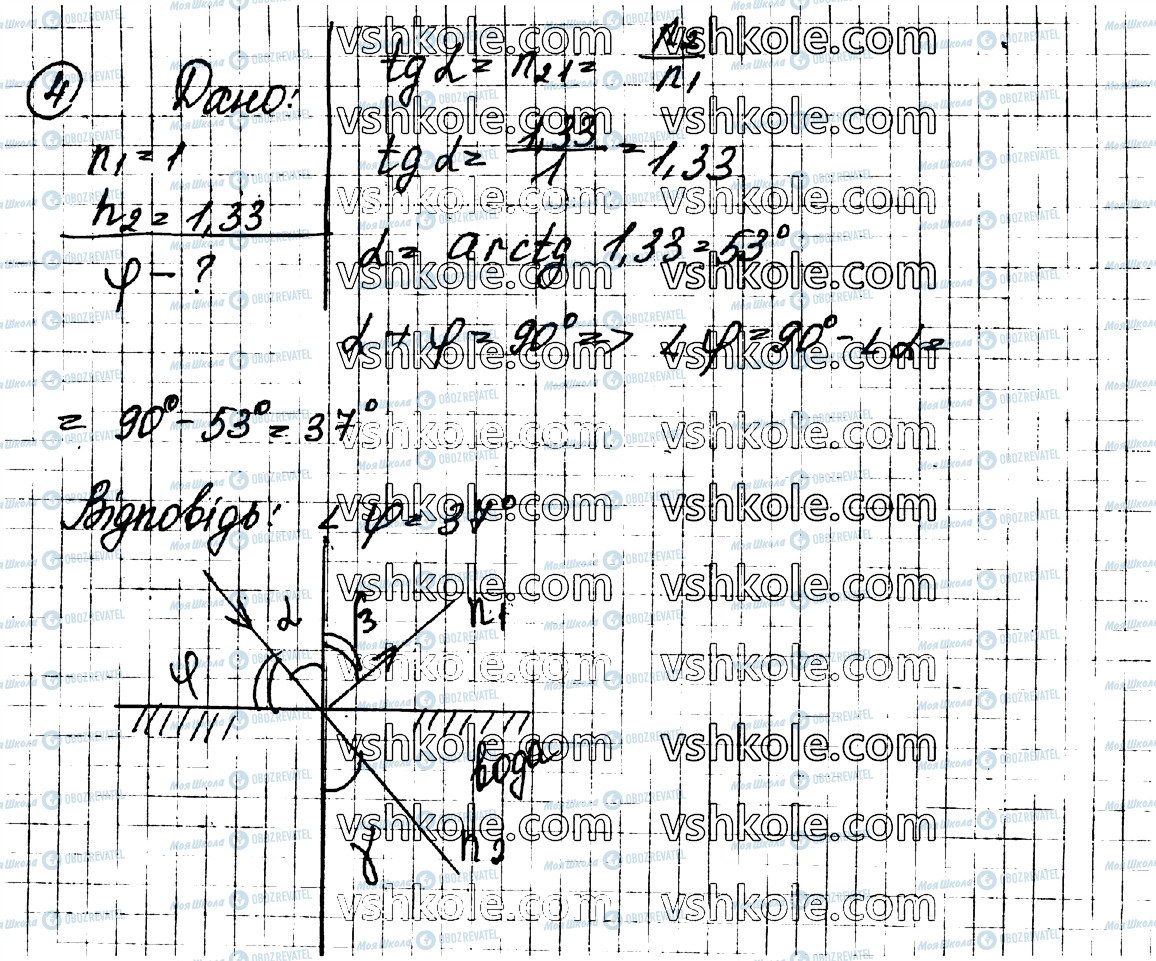 4 Дано:
n₁ = 1
n₂ = 1,33
φ - ?
tg α = n₂₁ = n₂/n₁
tg α = 1,33/1 = 1,33
α = arctg 1,33 = 53°
α + φ = 90° => ∠ φ = 90° - ∠ α =
= 90° - 53° = 37°
Відповідь: ∠ φ = 37°
α
β
n₁
φ
вода
γ
n₂
vshkole.com
Моя Школа OBOZREVATEL